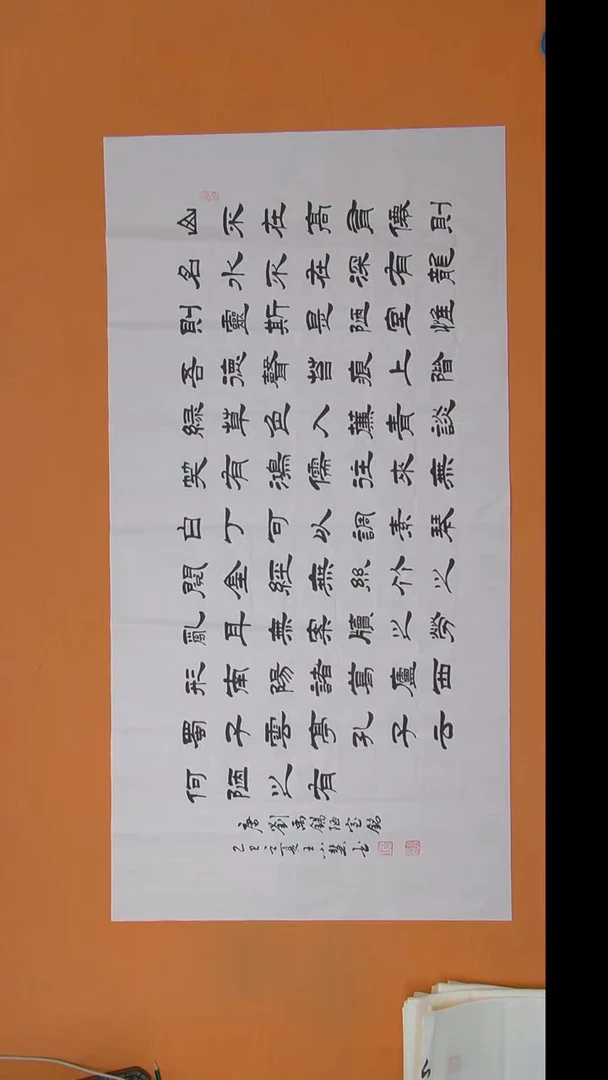 山不在高有僊則
名水不在深有龍
則靈斯是陋室惟
吾德馨苔痕上階
緑草色入簾青談
笑有鴻儒往來無
白丁可以調素琴
閱金經無絲竹之
亂耳無案牘之勞
形南陽諸葛廬西
蜀子雲亭孔子云
何陋之有
唐劉禹錫陋室銘
乙巳之夏王小書